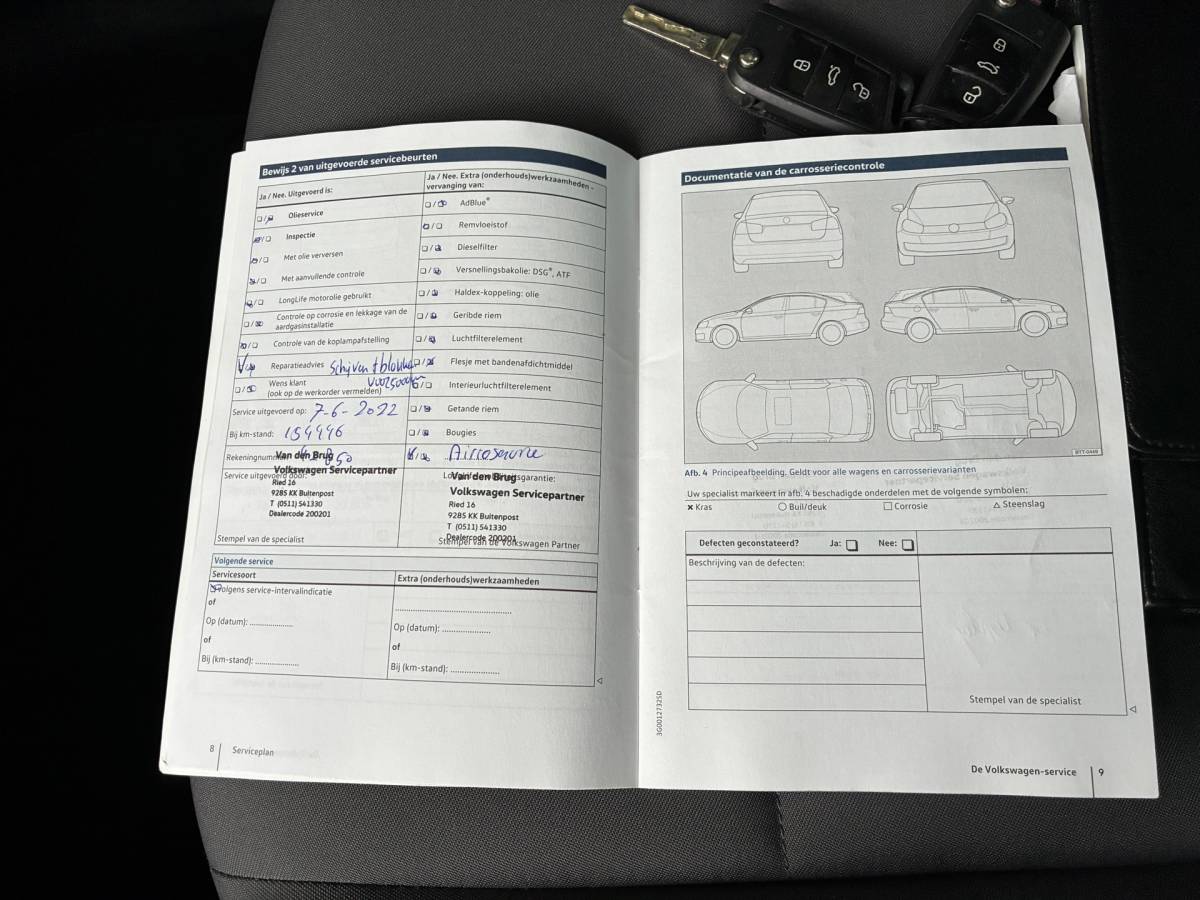 Bewijs 2 van uitgevoerde servicebeurten
Ja / Nee. Uitgevoerd is:
Ja / Nee. Extra (onderhouds)werkzaamheden -
vervanging van:
Olieservice
AdBlue®
Inspectie
Remvloeistof
Met olie verversen
Dieselfilter
Met aanvullende controle
Versnellingsbakolie: DSG®, ATF
LongLife motorolie gebruikt
Haldex-koppeling: olie
Controle op corrosie en lekkage van de
aardgasinstallatie
Geribde riem
Controle van de koplampafstelling
Luchtfilterelement
Reparatieadvies Schijven + blokken
Flesje met bandenafdichtmiddel
Wens klant voorzooien
(ook op de werkorder vermelden)
Interieurluchtfilterelement
Service uitgevoerd op: 7-6-2022
Getande riem
Bij km-stand: 154446
Bougies
Rekeningnummer:
Aircoservice
Service uitgevoerd door:
Van den Brug
Volkswagen Servicepartner
Ried 16
9285 KK Buitenpost
T (0511) 541330
Dealercode 200201
Stempel van de specialist
Van den Brug
Volkswagen Servicepartner
Ried 16
9285 KK Buitenpost
T (0511) 541330
Dealercode 200201
Stempel van de Volkswagen Partner
Volgende service
Servicesoort
Extra (onderhouds)werkzaamheden
Volgens service-intervalindicatie
of
Op (datum): ....................
of
Bij (km-stand): ....................
Op (datum): ....................
of
Bij (km-stand): ....................
8 Serviceplan
Documentatie van de carrosseriecontrole
BTT-0449
Afb. 4 Principeafbeelding. Geldt voor alle wagens en carrosserievarianten
Uw specialist markeert in afb. 4 beschadigde onderdelen met de volgende symbolen:
× Kras ○ Buil/deuk □ Corrosie △ Steenslag
Defecten geconstateerd? Ja: Nee:
Beschrijving van de defecten:
Stempel van de specialist
3G0012732SD
De Volkswagen-service 9